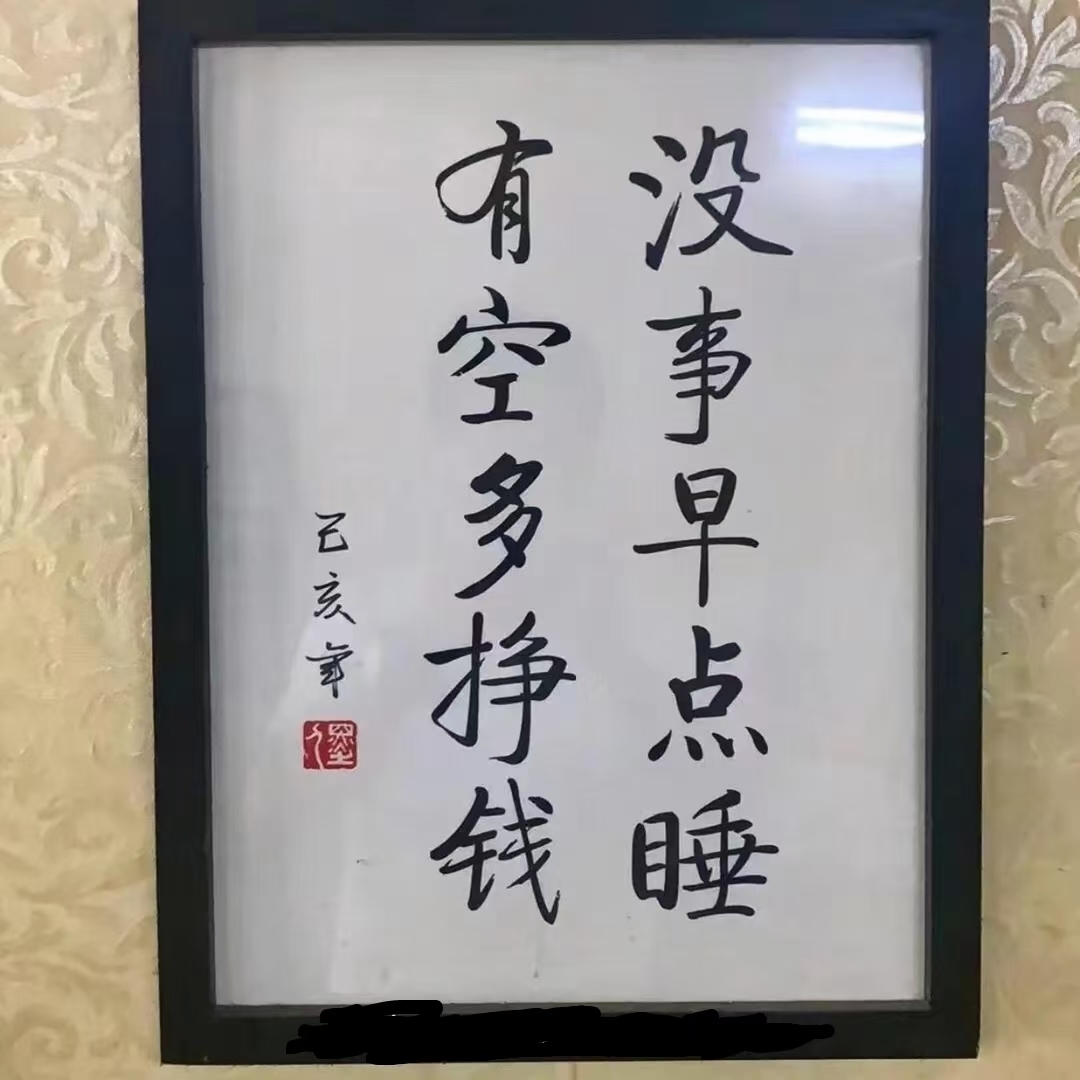 没事早点睡
有空多挣钱
己亥年
墨人